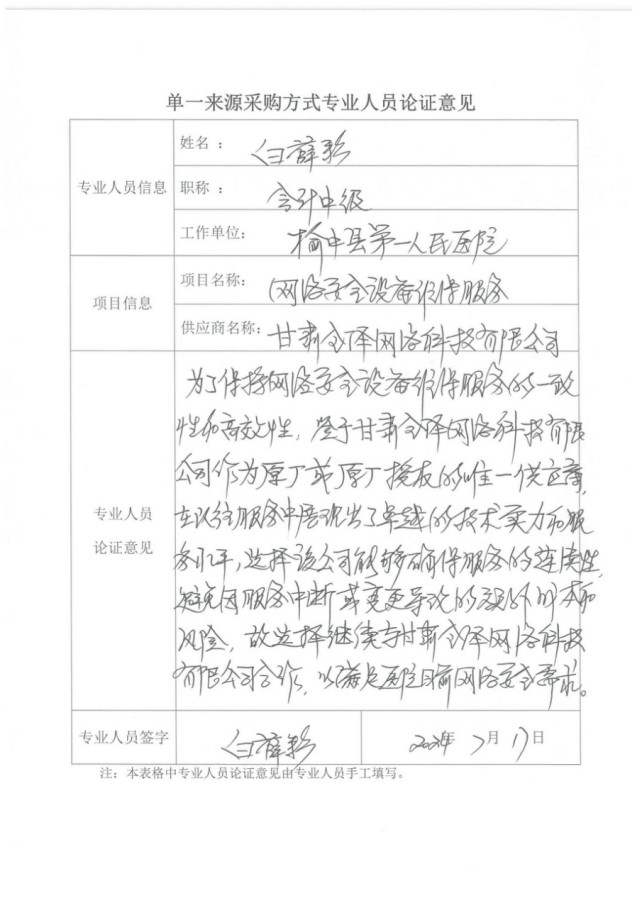 单一来源采购方式专业人员论证意见
专业人员信息
姓名：白薛彩
职称：会计中级
工作单位：榆中县第一人民医院
项目信息
项目名称：网络安全设备维保服务
供应商名称：甘肃全泽网络科技有限公司
专业人员
论证意见
为了保持网络安全设备维保服务的一致
性和高效性，鉴于甘肃全泽网络科技有限
公司作为原厂或原厂授权的唯一供应商，
在以往服务中展现出了卓越的技术实力和服
务水平，选择该公司能够确保服务的连续性，
避免因服务中断或变更导致的额外成本和
风险，故选择继续与甘肃全泽网络科技
有限公司合作，以满足医院目前网络安全需求。
专业人员签字
白薛彩
2024年7月17日
注：本表格中专业人员论证意见由专业人员手工填写。